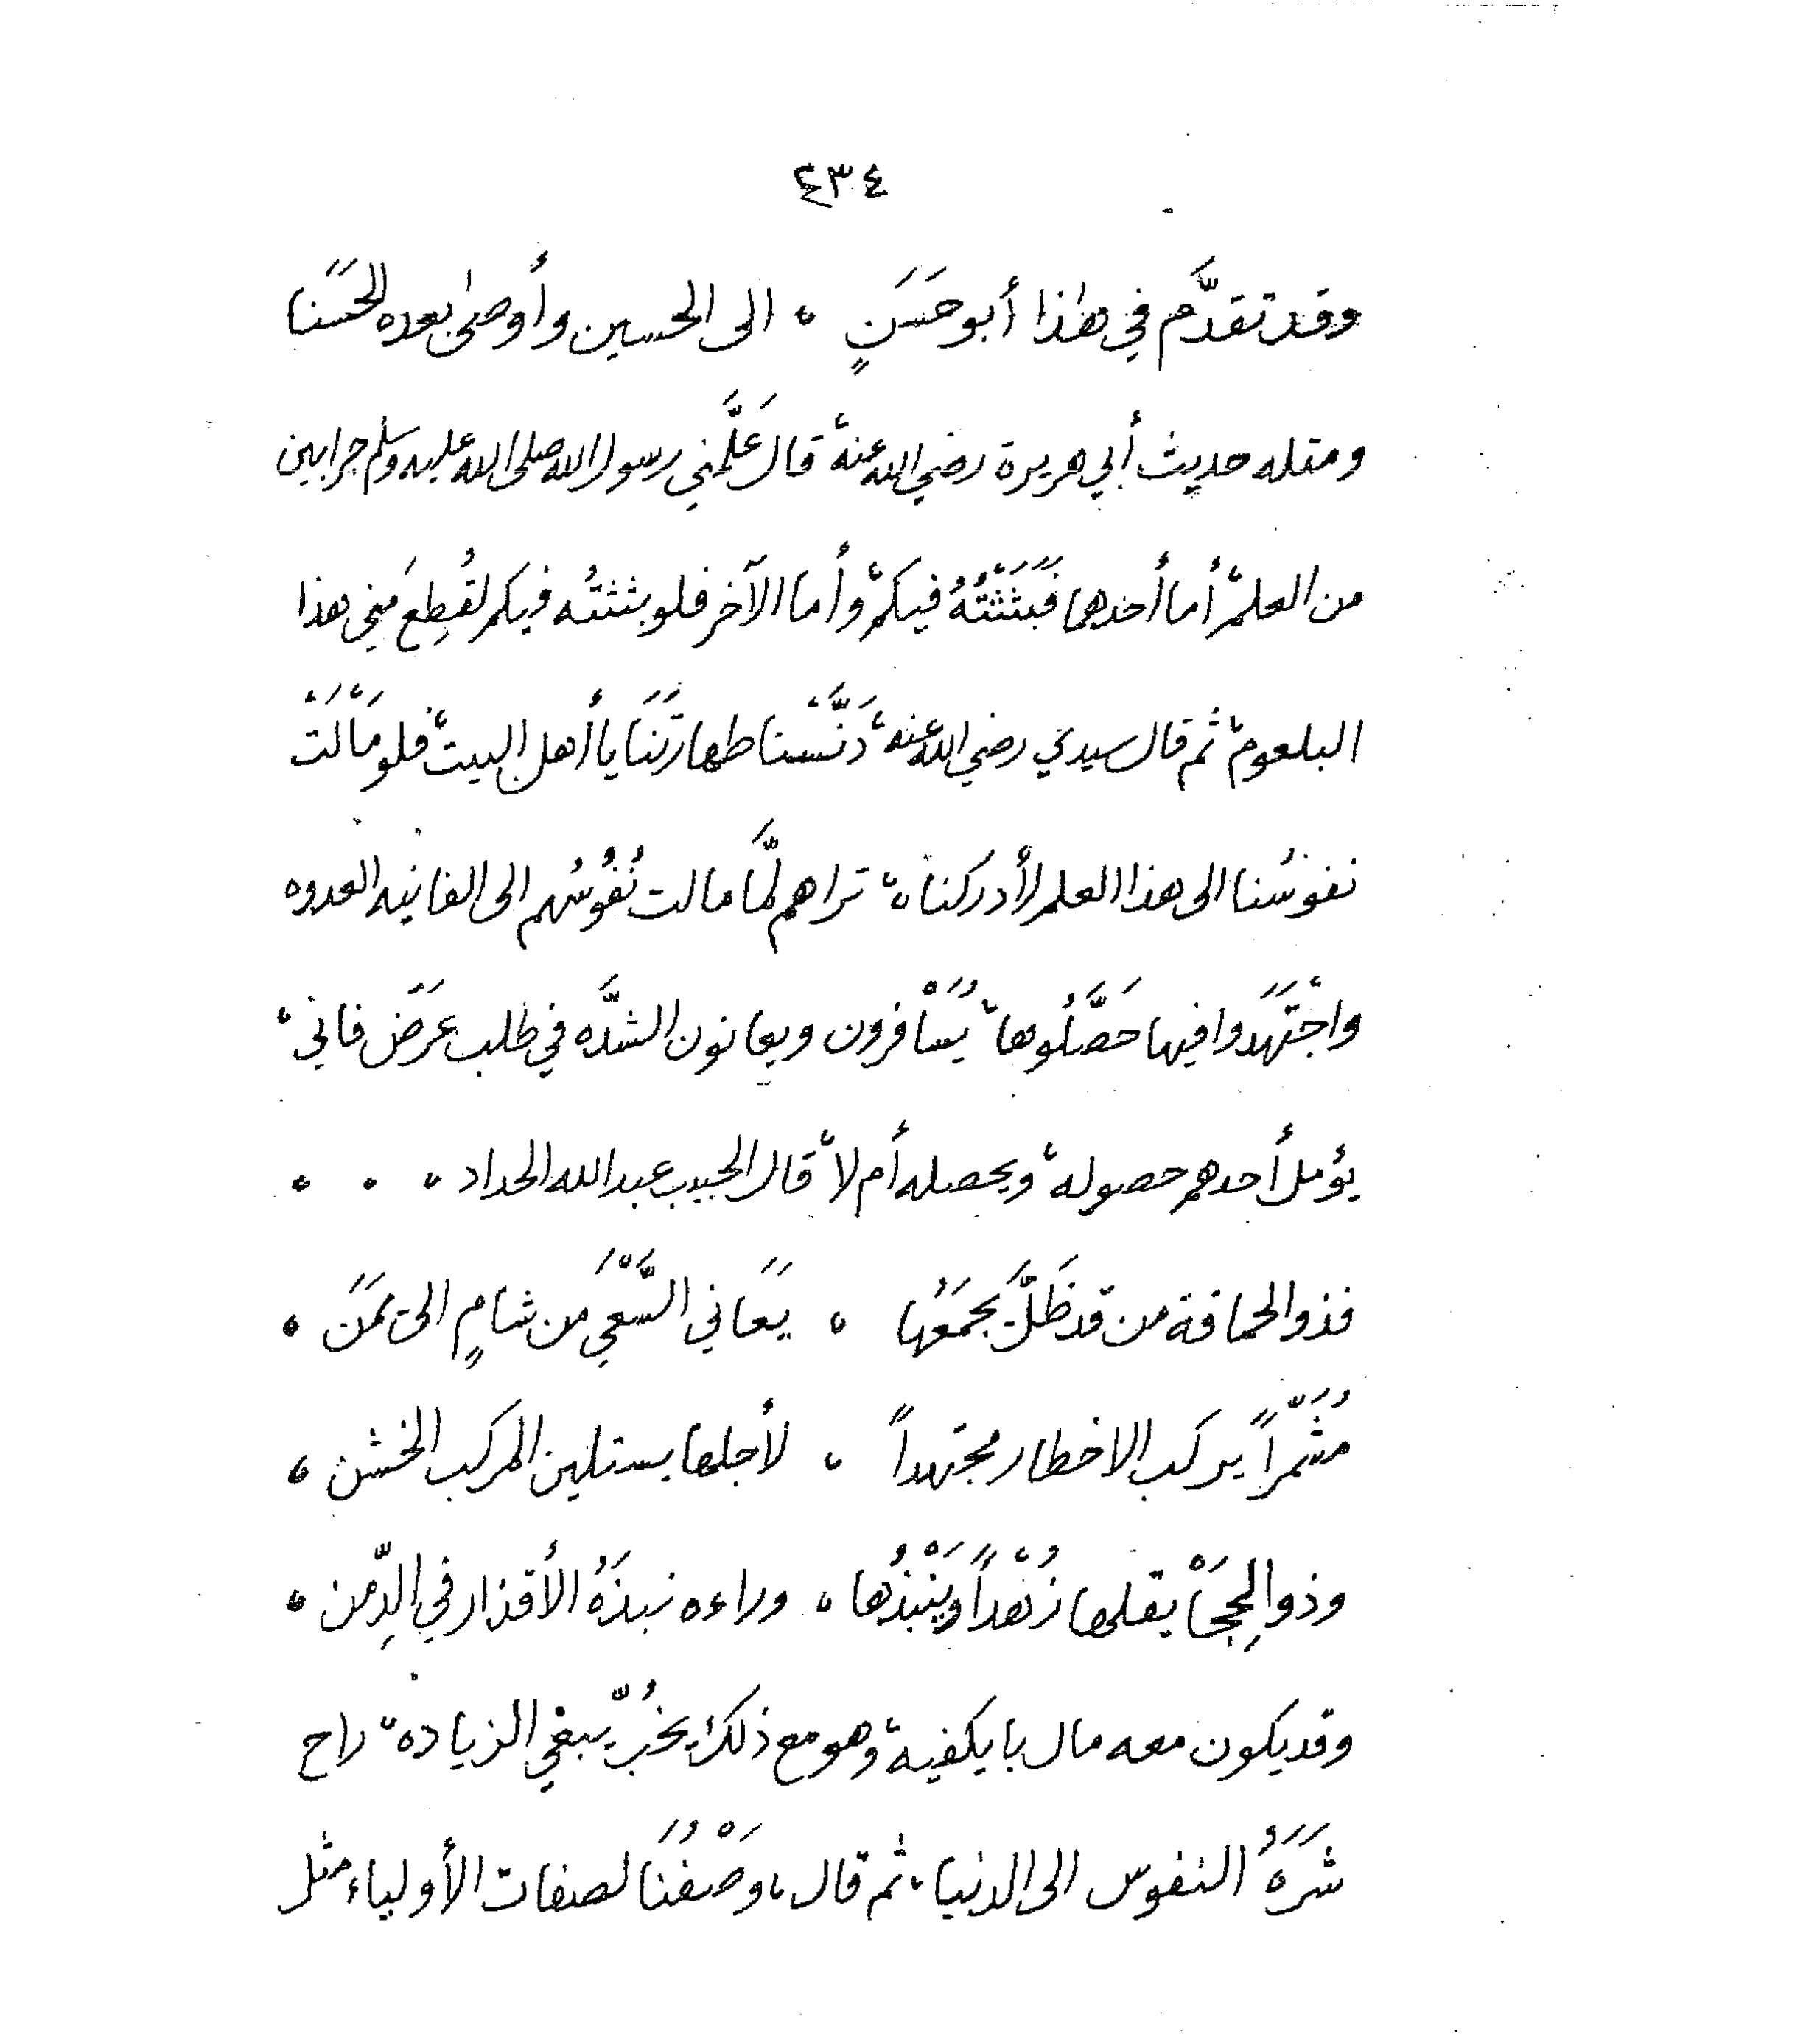 ٤٣٤
وقد تقدَّم في هٰذا أبو حَسَنٍ ، الى الحسين وأوصىٰ بعده الحَسَنا
ومثله حديث أبي هريرة رضي الله عنه، قال عَلَّمني رسول الله صلى الله عليه وسلم جرابين
من العلم، أما أحدهما فَبَثَثْتُهُ فيكم، وأما الآخر فلو بثثتُه فيكم لقُطِعَ مني هذا
البلعوم، ثم قال سيدي رضي الله عنه، دَنَّسْنا طهارتَنَا يا أهل البيت، فلو مَالَتْ
نفوسُنا الى هذا العلم لأدركناه، تراهم لمَّا مالت نُفُوسُهم الى الفانيه العدوه
واجْتَهَدَوا فيها حَصَّلُوها، يُسَافرون ويعانون الشدَّه في طلب عَرَض فاني،
يؤمل أحدهم حصوله، ويحصله أم لا، قال الحبيب عبدالله الحداد ، ، ،
فذو الحماقة من قد ظَلَّ يجمَعُها ، يَعَاني السَّعْيَ من شامٍ الى يَمَن ،
مُشَمّراً يركب الاخطار مجتهداً ، لأجلها يستلين المركب الخشن ،
وذو الحِجَا يقلها زُهْداً ويَنْبذُها ، وراءه نبذَهُ الأقذار في الدِّمن ،
وقد يكون معه مال بايكفيه، وهو مع ذلك يخُبّ يبغي الزياده، راح
شَرَهُ النفوس الى الدنيا، ثم قال، وصْفُنَا لصفات الأولياء مثل